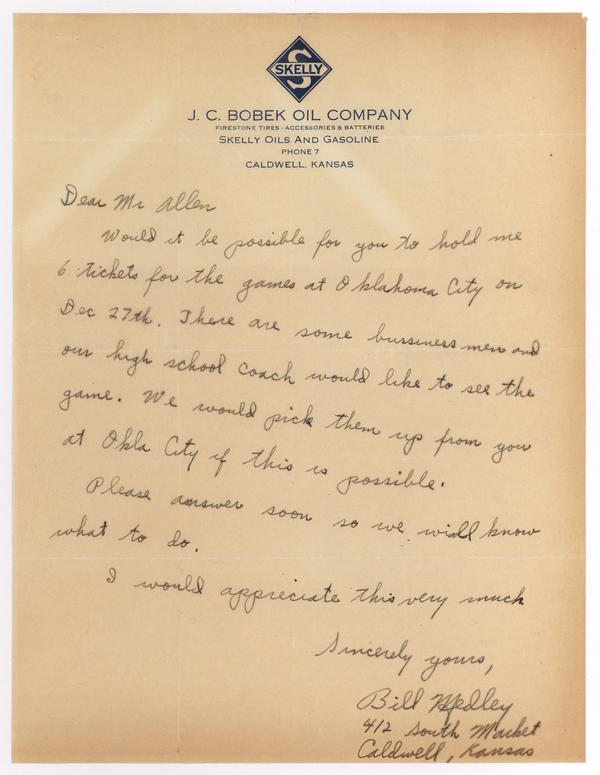 SKELLY
S
J. C. BOBEK OIL COMPANY
FIRESTONE TIRES - ACCESSORIES & BATTERIES
SKELLY OILS AND GASOLINE
PHONE 7
CALDWELL, KANSAS
Dear Mr Allen
Would it be possible for you to hold me
6 tickets for the games at Oklahoma City on
Dec 27th. There are some bussiness men and
our high school coach would like to see the
game. We would pick them up from you
at Okla City if this is possible.
Please answer soon so we will know
what to do.
I would appreciate this very much
Sincerely yours,
Bill Medley
412 South Market
Caldwell, Kansas